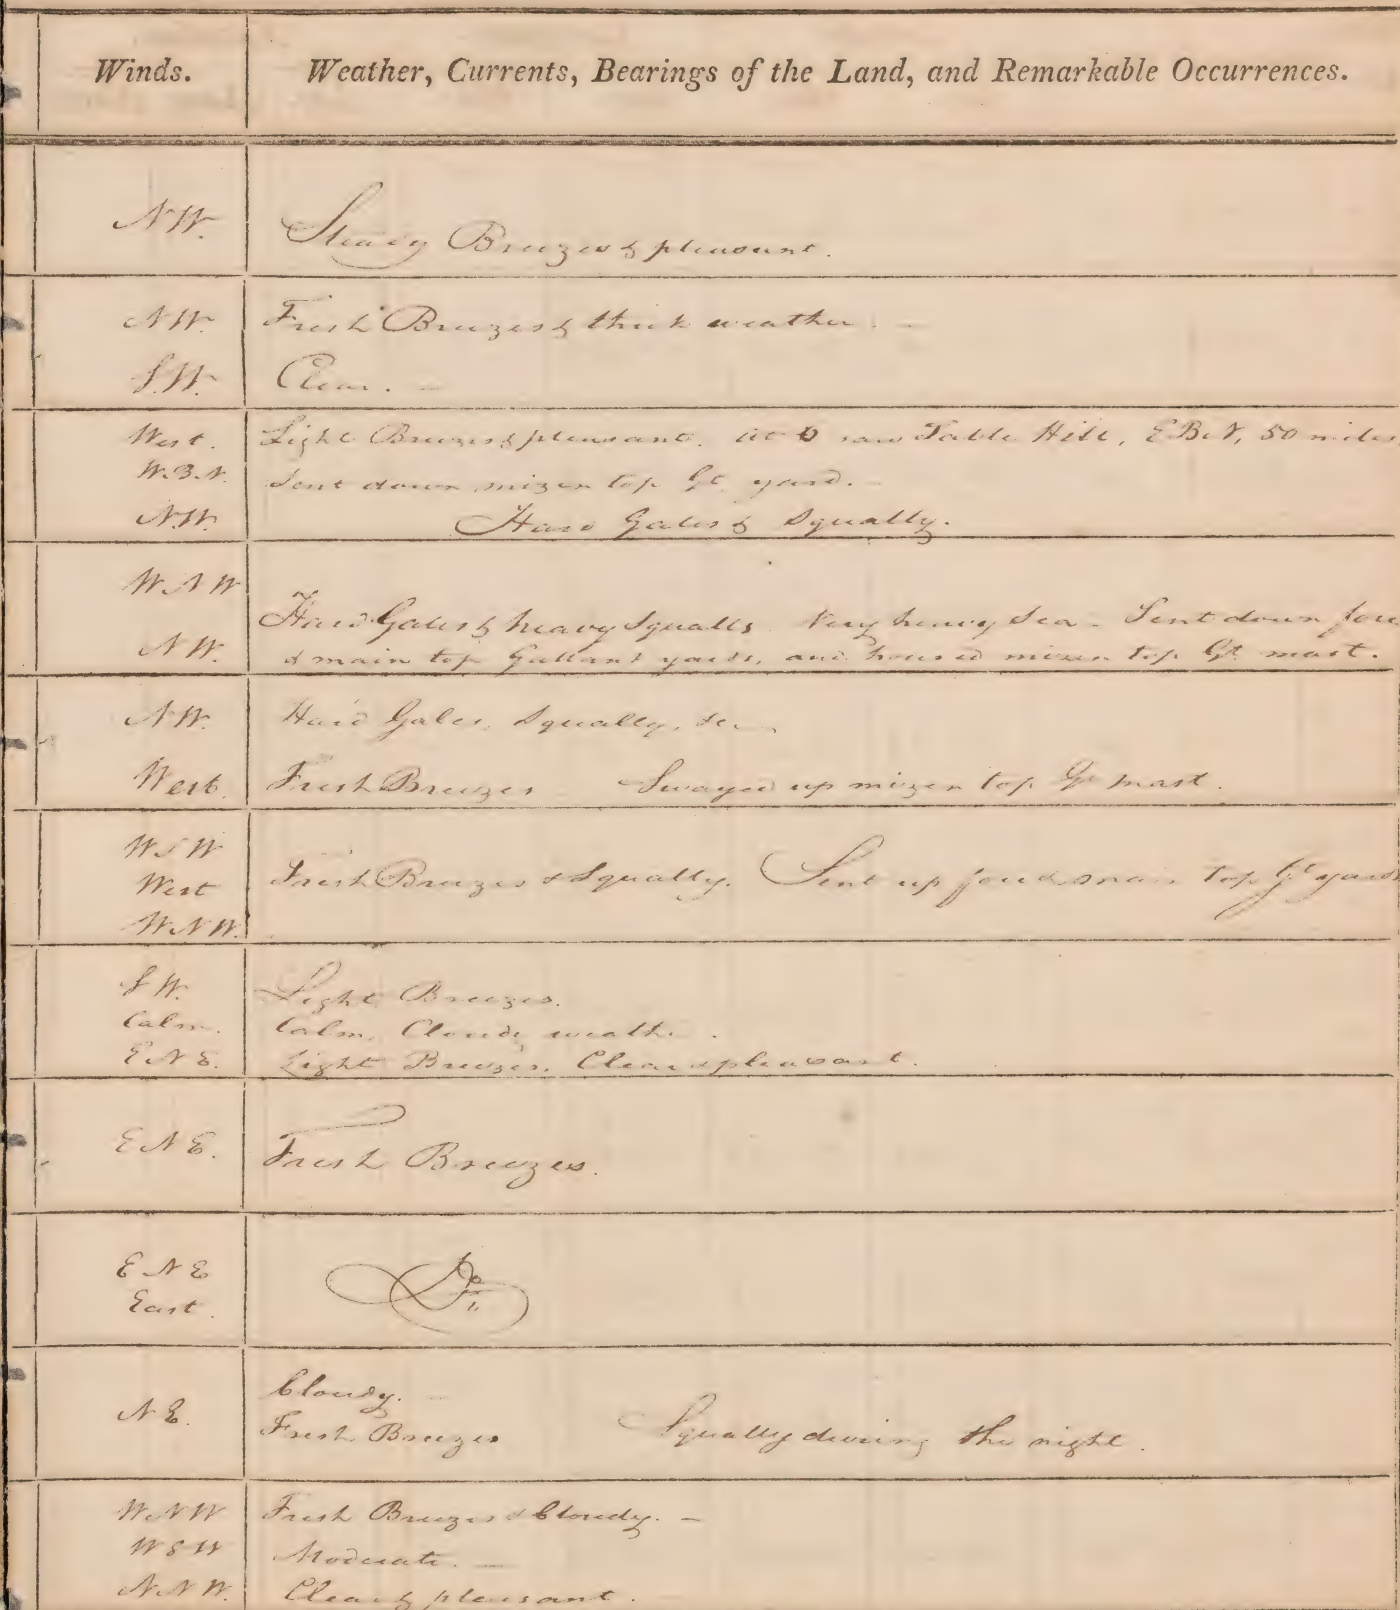 Winds. Weather, Currents, Bearings of the Land, and Remarkable Occurrences.
N W. Steady Breezes & pleasant.
N W. Fresh Breezes & thick weather. –
S. W. Clear. –
West. Light Breezes & pleasant. at 6 saw Table Hill, E B N, 50 miles
W. B. N. Sent down mizen top Gt. yard. –
N. W. Hard Gales & Squally.
W N W
Hard Gales & heavy Squalls. Very heavy Sea – Sent down fore
N W. & main top Gallant yards, and housed mizen top Gt. mast.
N W. Hard Gales, Squally, &c
West. Fresh Breezes – Swayed up mizen top Gt mast.
W S W
West Fresh Breezes & Squally. Sent up fore & main top Gt yards
W N W.
S W. Light Breezes.
Calm. Calm, Cloudy weather.
E N E. Light Breezes. Clear & pleasant.
E N E. Fresh Breezes.
E N E
East. Do
Cloudy. –
N E. Fresh Breezes Squally during the night.
W N W Fresh Breezes & Cloudy. –
W S W Moderate. –
N. N W. Clear & pleasant.